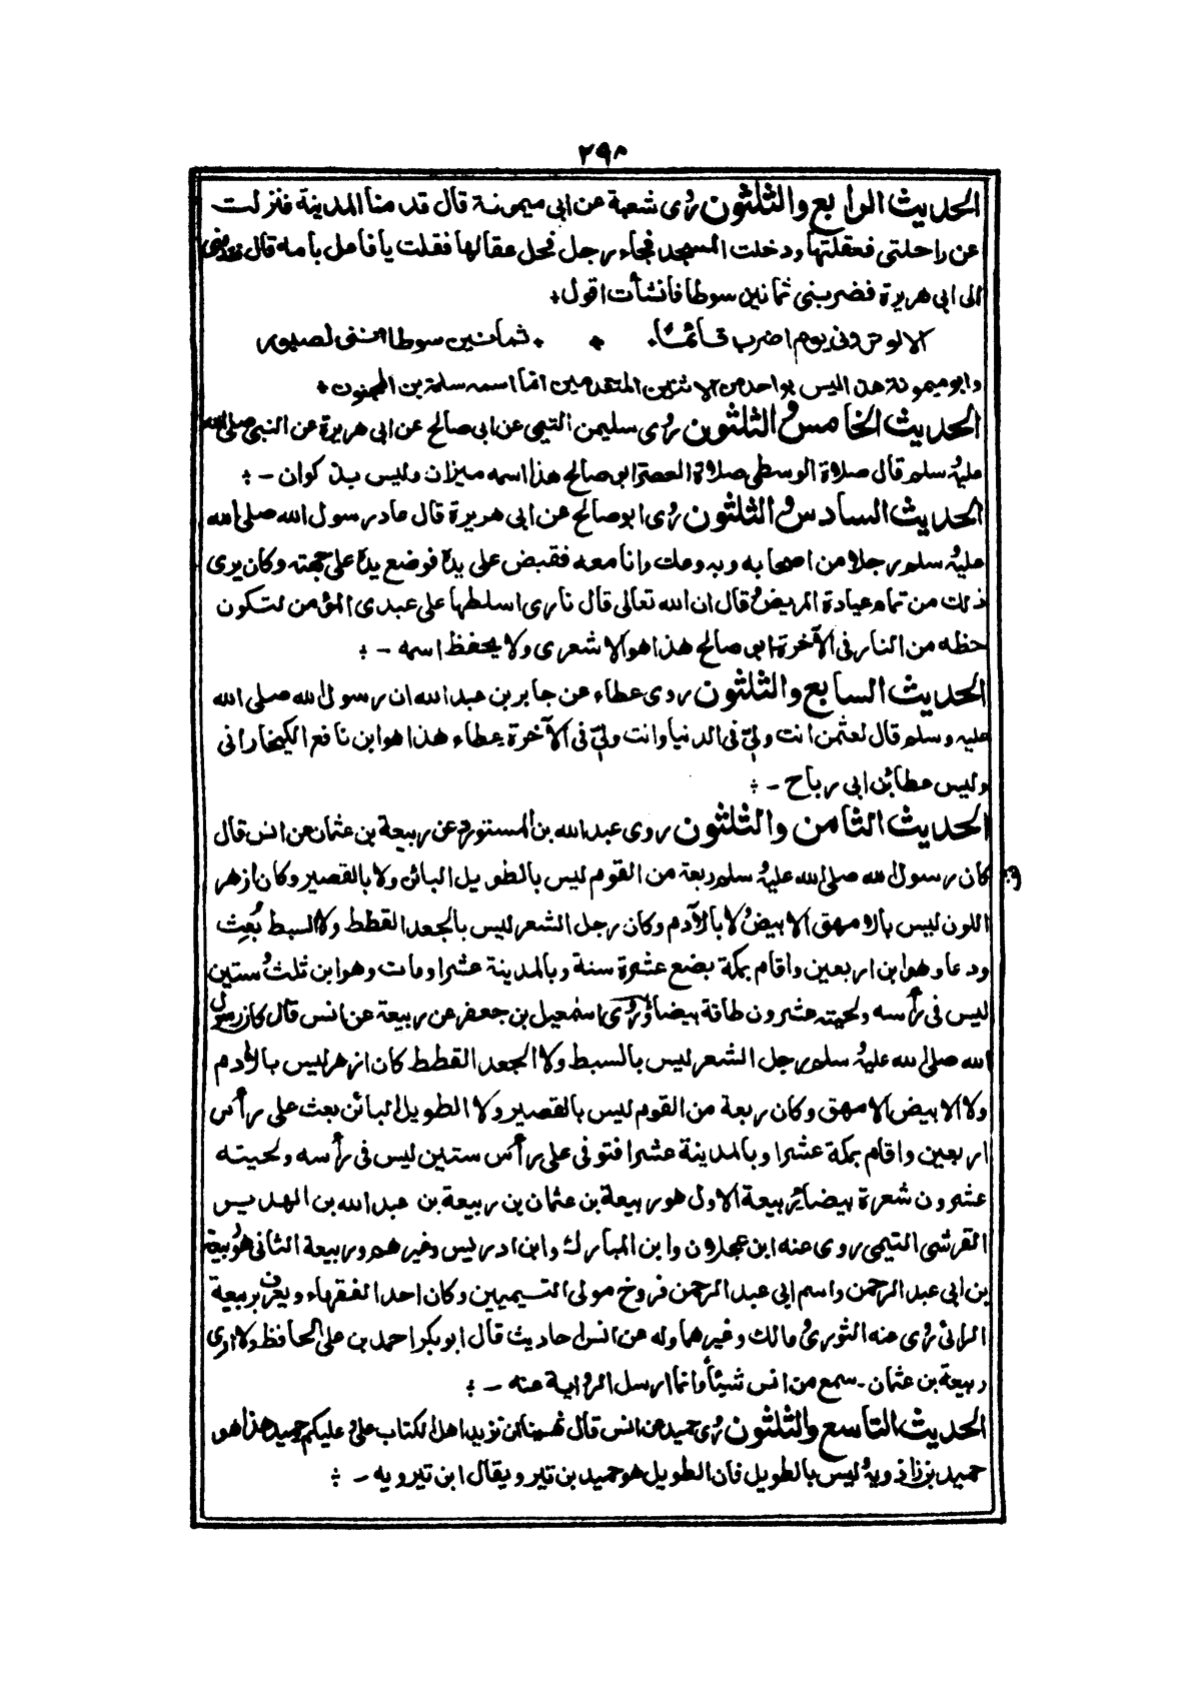 ٢٩٨
الحديث الرابع والثلثون روى شعبة عن ابى ميمونة قال قدمنا المدينة فنزلت
عن راحلتى فعقلتها ودخلت المسجد فجاء رجل فحل عقالها فقلت يا فاعل بامه قال فقدمنى
الى ابى هريرة فضربنى ثمانين سوطا فانشأت اقول
الا لو ترونى يوم اضرب قائما ثمانين سوطا اننى لصبور
وابو ميمونة هذا ليس بواحد من الاثنين المتقدمين انما اسمه سلمة بن المجنون
الحديث الخامس والثلثون روى سليمن التيمى عن ابى صالح عن ابى هريرة عن النبى صلى الله
عليه وسلم قال صلاة الوسطى صلاة العصر ابو صالح هذا اسمه ميزان وليس بذكوان -
الحديث السادس والثلثون روى ابو صالح عن ابى هريرة قال عاد رسول الله صلى الله
عليه وسلم رجلا من اصحابه وبه وعك وانا معه فقبض على يده فوضع يده على جبهته وكان يرى
ذلك من تمام عيادة المريض وقال ان الله تعالى قال نارى اسلطها على عبدى المؤمن لتكون
حظه من النار فى الآخرة ابو صالح هذا هو الاشعرى ولا يحفظ اسمه -
الحديث السابع والثلثون روى عطاء عن جابر بن عبد الله ان رسول الله صلى الله
عليه وسلم قال لعثمن انت وليّ فى الدنيا وانت وليّ فى الآخرة عطاء هذا هو ابن نافع الكيخارانى
وليس عطا بن ابى رباح -
الحديث الثامن والثلثون روى عبد الله بن المستورد عن ربيعة بن عثمان عن انس قال
كان رسول الله صلى الله عليه وسلم ربعة من القوم ليس بالطويل البائن ولا بالقصير وكان ازهر
اللون ليس بالامهق الابيض ولا بالآدم وكان رجل الشعر ليس بالجعد القطط ولا السبط بُعِث
ودعا وهو ابن اربعين واقام بمكة بضع عشرة سنة وبالمدينة عشرا ومات وهو ابن ثلث وستين
ليس فى رأسه ولحيته عشرون طاقة بيضاء وروى اسمعيل بن جعفر عن ربيعة عن انس قال كان رسول
الله صلى الله عليه وسلم رجل الشعر ليس بالسبط ولا الجعد القطط كان ازهر ليس بالآدم
ولا الابيض الامهق وكان ربعة من القوم ليس بالقصير ولا الطويل البائن بعث على رأس
اربعين واقام بمكة عشرا وبالمدينة عشرا فتوفى على رأس ستين ليس فى رأسه ولحيته
عشرون شعرة بيضاء ربيعة الاول هو ربيعة بن عثمان بن ربيعة بن عبد الله بن الهدير
القرشى التيمى روى عنه ابن عجلان وابن المبارك وابن ادريس وغيرهم وربيعة الثانى هو ربيعة
بن ابى عبد الرحمن واسم ابى عبد الرحمن فروخ مولى التيميين وكان احد الفقهاء ويعرف بربيعة
الرائ روى عنه الثورى ومالك وغيرهما وله عن انس احاديث قال ابو بكر احمد بن على الحافظ ولا ارى
ربيعة بن عثمان - سمع من انس شيئاً وانما ارسل الرواية عنه -
الحديث التاسع والثلثون روى حميد عن انس قال نهينا ان نزيد اهل الكتاب على وعليكم حميد هذا هو
حميد بن زاذويه وليس بالطويل فان الطويل هو حميد بن تير ويقال ابن تيرويه -